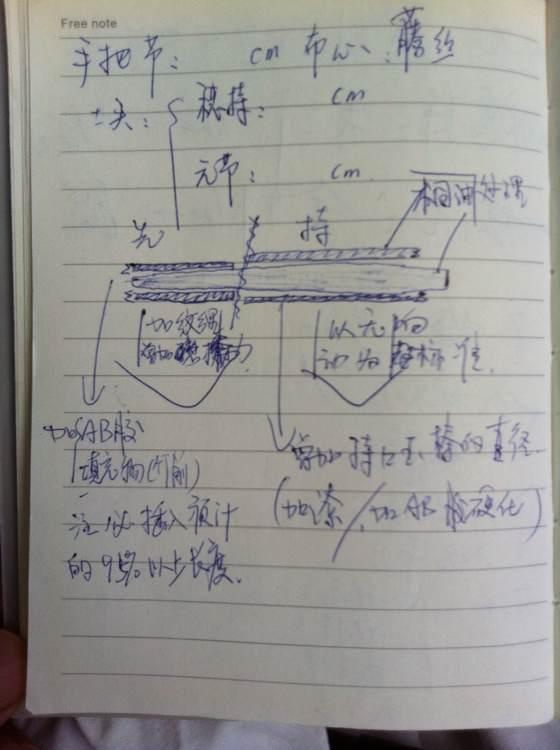 Free note
手把节: cm 布心、: 藤丝
二头: 穗持: cm
元节: cm
先 持 桐油处理
加纹绳 以元的
增加 摩擦力 动为 标准.
加AB胶 增加持口玉 的直径
填充物(竹削) (加漆/加AB胶硬化)
注必插入预计
的95%以上长度.